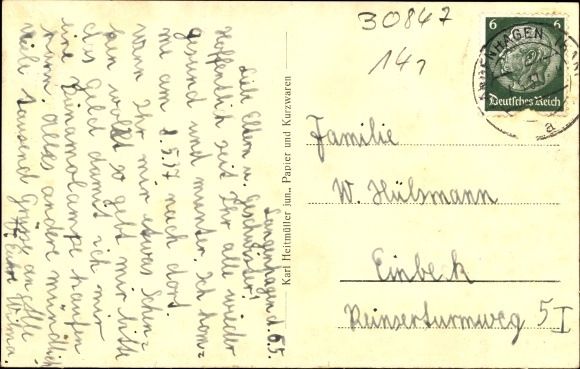 30847
14,
6 6
Deutsches Reich
LANGENHAGEN
a
Langenhagen d. 6.5.
Liebe Eltern u. Geschwister!
Hoffentlich seit Ihr alle wieder
gesund und munter. Ich kom=
me am 8.5.17 nach dort
wenn Ihr mir etwas Schin=
ken wollt so gebt mir bitte
das Geld damit ich mir
eine Dünamolampe kaufen
kann. Alles andre mündlich
viele tausend Grüße an Alle
Eure Wilma.
Karl Heitmüller jun., Papier und Kurzwaren
Familie
W. Hülsmann
Einbeck
Reinserturmweg 5 I